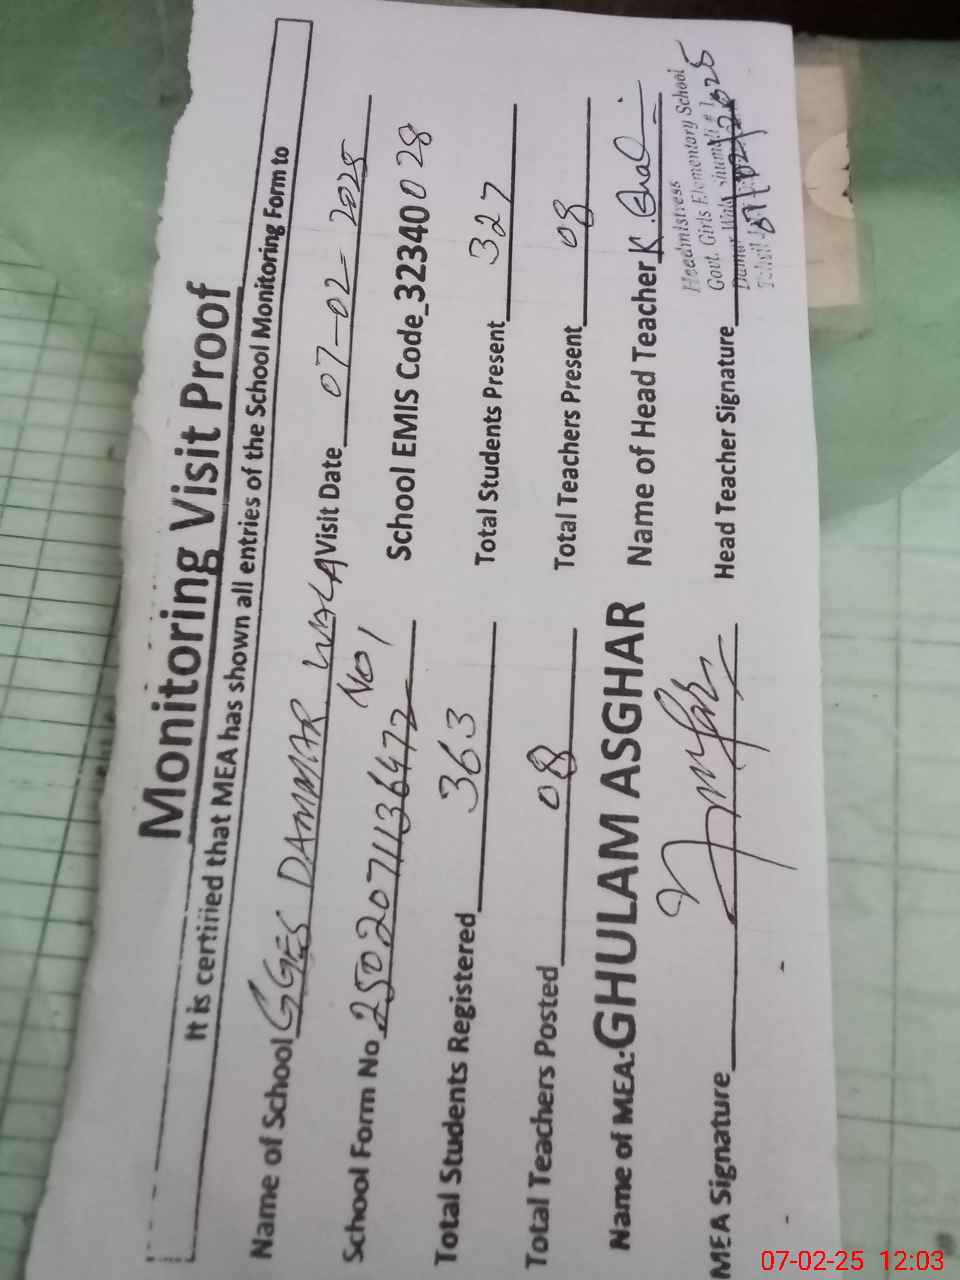 Monitoring Visit Proof
It is certified that MEA has shown all entries of the School Monitoring Form to
Name of School GGES DAMMAR WALA Visit Date 07-02-2025
No 1
School Form No 2502071136472 School EMIS Code_32340028
Total Students Registered 363 Total Students Present 327
Total Teachers Posted 08 Total Teachers Present 08
Name of MEA: GHULAM ASGHAR Name of Head Teacher K.
MEA Signature Head Teacher Signature
Headmistress
Govt. Girls Elementary School
07/02/2025
07-02-25 12:03